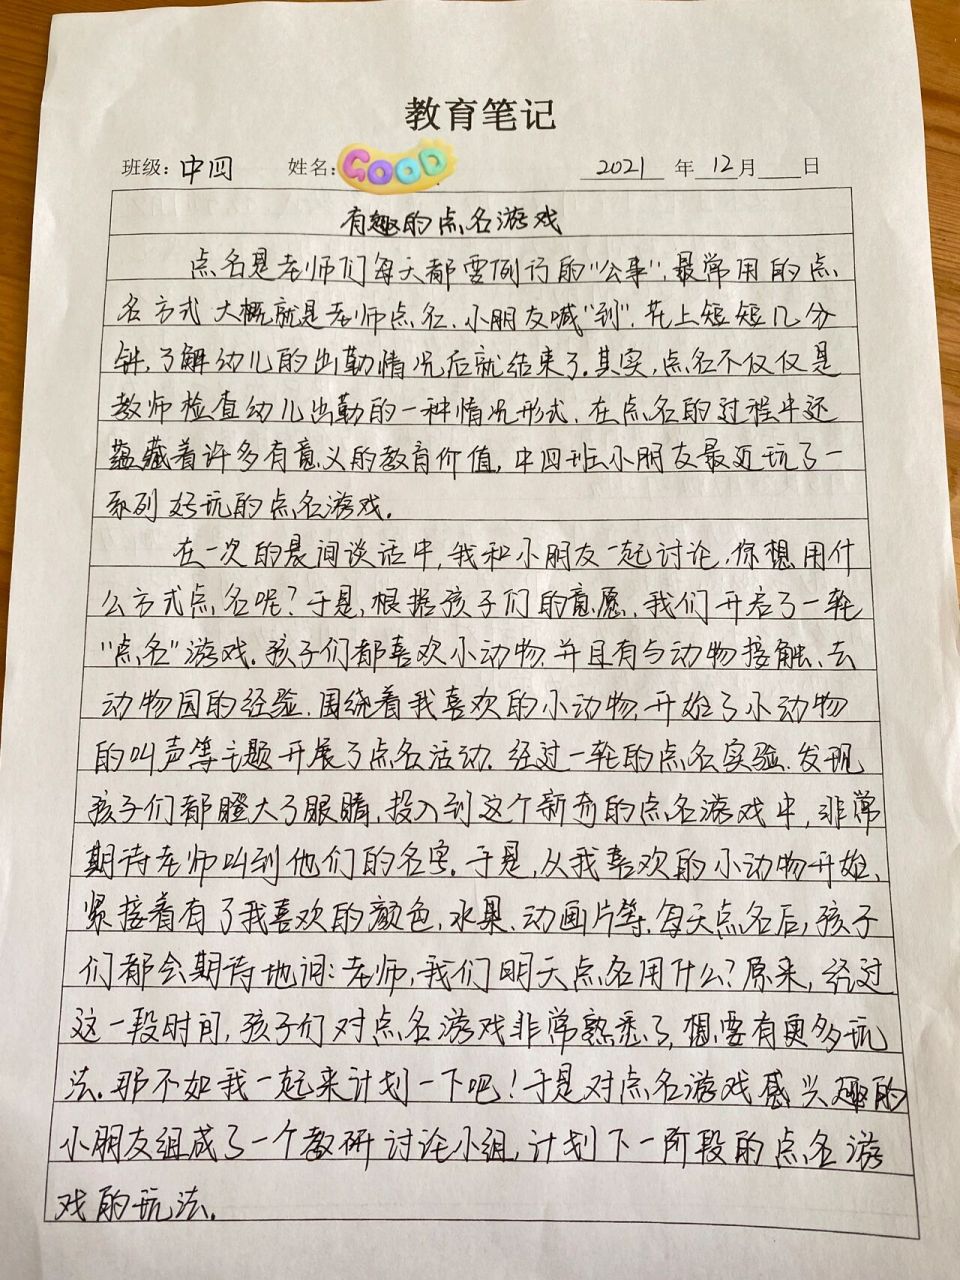 教育笔记
班级：中四 姓名： GOOD 2021 年 12 月 日
有趣的点名游戏
点名是老师们每天都要例行的“公事”，最常用的点
名方式大概就是老师点名、小朋友喊“到”，花上短短几分
钟，了解幼儿的出勤情况后就结来了。其实，点名不仅仅是
教师检查幼儿出勤的一种情况形式，在点名的过程中还
蕴藏着许多有意义的教育价值，中四班小朋友最近玩了一
系列好玩的点名游戏。
在一次的晨间谈话中，我和小朋友一起讨论，你想用什
么方式点名呢？于是，根据孩子们的意愿，我们开启了一轮
“点名”游戏。孩子们都喜欢小动物，并且有与动物接触、去
动物园的经验，围绕着我喜欢的小动物，开始了小动物
的叫声等主题开展了点名活动。经过一轮的点名实验，发现
孩子们都瞪大了眼睛，投入到这个新奇的点名游戏中，非常
期待老师叫到他们的名字。于是，从我喜欢的小动物开始，
紧接着有了我喜欢的颜色，水果、动画片等，每天点名后，孩子
们都会期待地问：老师，我们明天点名用什么？原来，经过
这一段时间，孩子们对点名游戏非常熟悉了，想要有更多玩
法。那不如我一起来计划一下吧！于是对点名游戏感兴趣的
小朋友组成了一个教研讨论小组，计划下一阶段的点名游
戏的玩法。